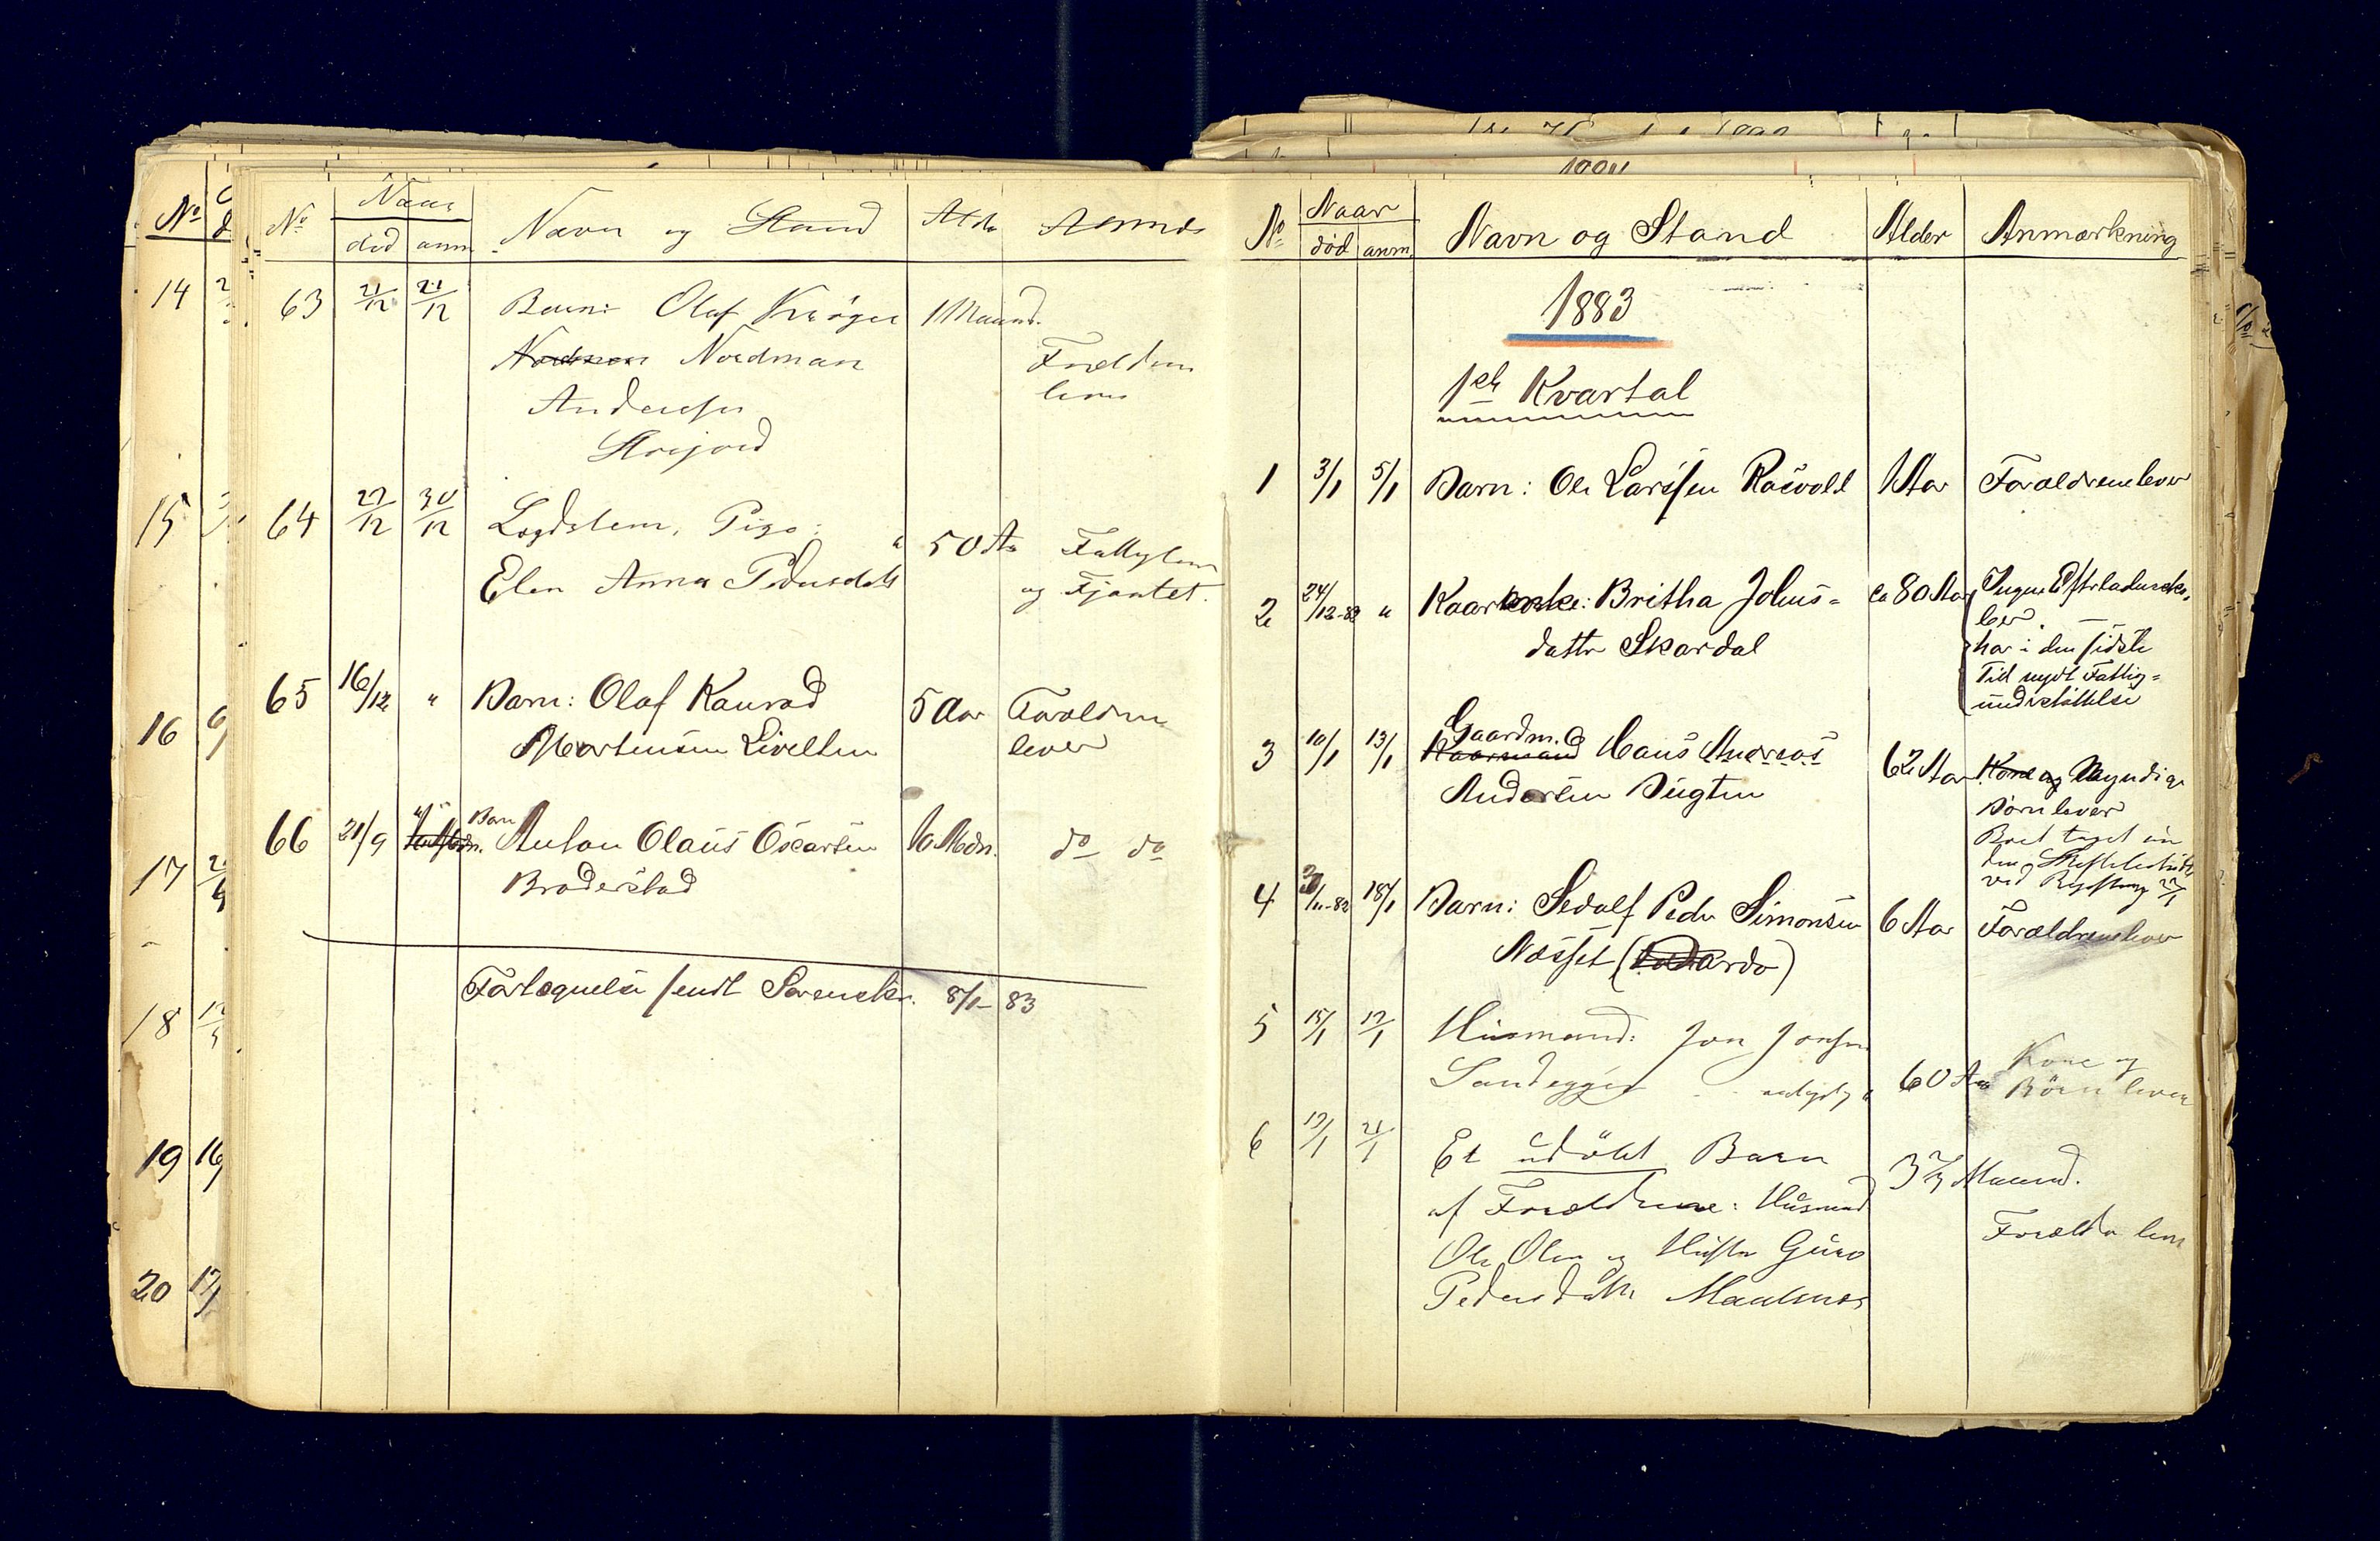 No
14
15
16
17
18
19 16/
20 17/1
No Naar Navn og Stand Alder Anmærk
død anm.
63 21/12 21/12 Barn: Olaf Krøger 1 Maaned.
Nordman Nordman Forældrene
Andersen lever
Storjord
64 27/12 30/12 Logdslem, Pige: 50 Aar Fattiglem
Elen Anna Pedersdatt og Fjantet.
65 16/12 " Barn: Olaf Konrad 5 Aar Forældrene
Mortensen Livelten lever
66 21/9 Barn Anton Olaus Oscarsen 10 Mdn. do do
Broderstad
Fortegnelse sendt Sorenskr. 8/1-83
No Naar Navn og Stand Alder Anmærkning
død anm.
1883
1ste Kvartal
1 3/1 5/1 Barn: Ole Larssen Røsvold 1 Aar Forældrene lever
2 24/12-82 " Kaarenke: Britha Johns= ca 80 Aar Ingen Efterladende
datter Skardal lever.
har i den sidste
Tid nydt Fattig=
understøttelse
3 10/1 13/1 Gaardm.
Kaarmand Hans Andreas 62 Aar Kone og Myndige
Andersen Vugten Børn lever
Boet taget
ved
4 30/11-82 18/1 Barn: Sedolf Peder Simonsen 6 Aar Forældrene lever
Næsset
5 15/1 17/1 Husmand: Jon Jonsen
Sandegget 60 Aar Kone og
Børn lever
6 17/1 21/1 Et udøbt Barn 3 Maaned.
af Forældrene: Husmand
Ole Olsen og Hustru Guro Forældre lever
Pedersdatter Maulnes